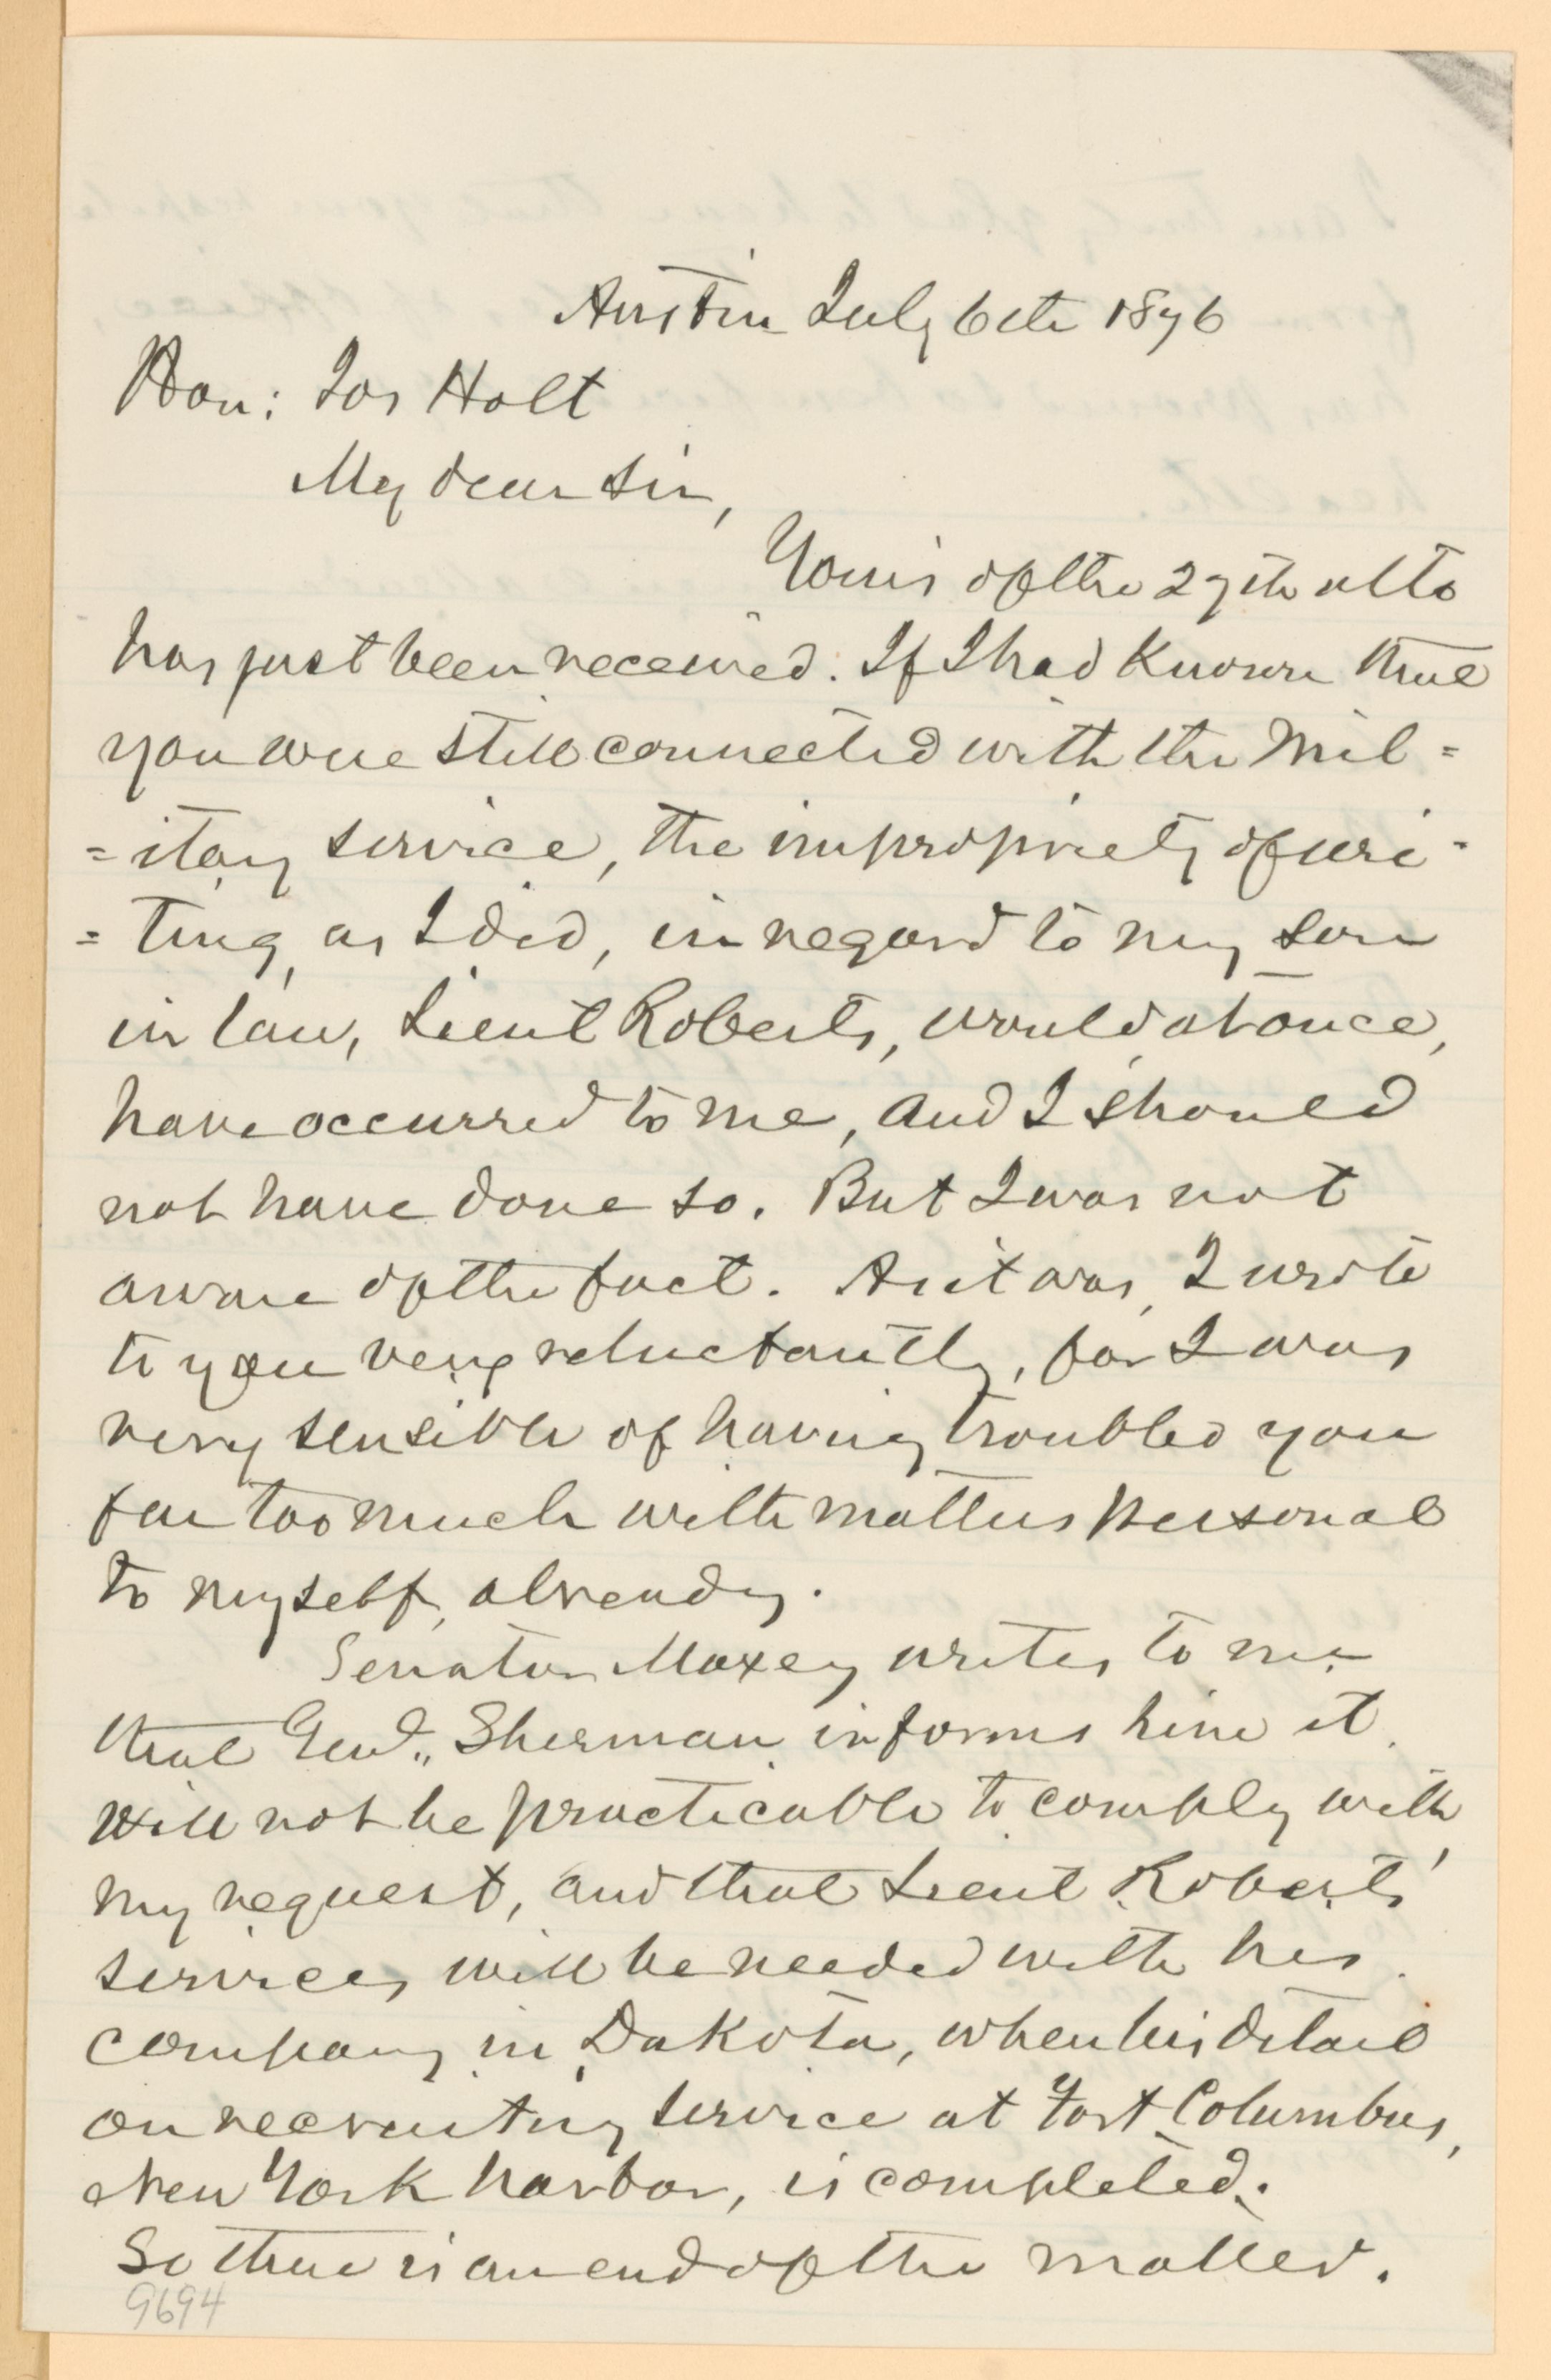 Austin July 6th 1876
Hon: Jos Holt
My dear Sir,
Yours of the 27th ulto
has just been received. If I had known that
you were still connected with the Mil=
=itary service, the impropriety of wri-
=ting, as I did, in regard to my son
in law, Lieut Roberts, would at once,
have occurred to me, and I should
not have done so. But I was not
aware of the fact. As it was, I wrote
to you very reluctantly, for I was
very sensible of having troubled you
far too much with matters personal
to myself, already.
Senator Maxey writes to me
that Genl,, Sherman informs him it
will not be practicable to comply with
my request, and that Lieut Roberts'
services will be needed with his
company in Dakota, when his detail
on recruiting service at Fort Columbus,
New York harbor, is completed.
So there is an end of the matter.
9694